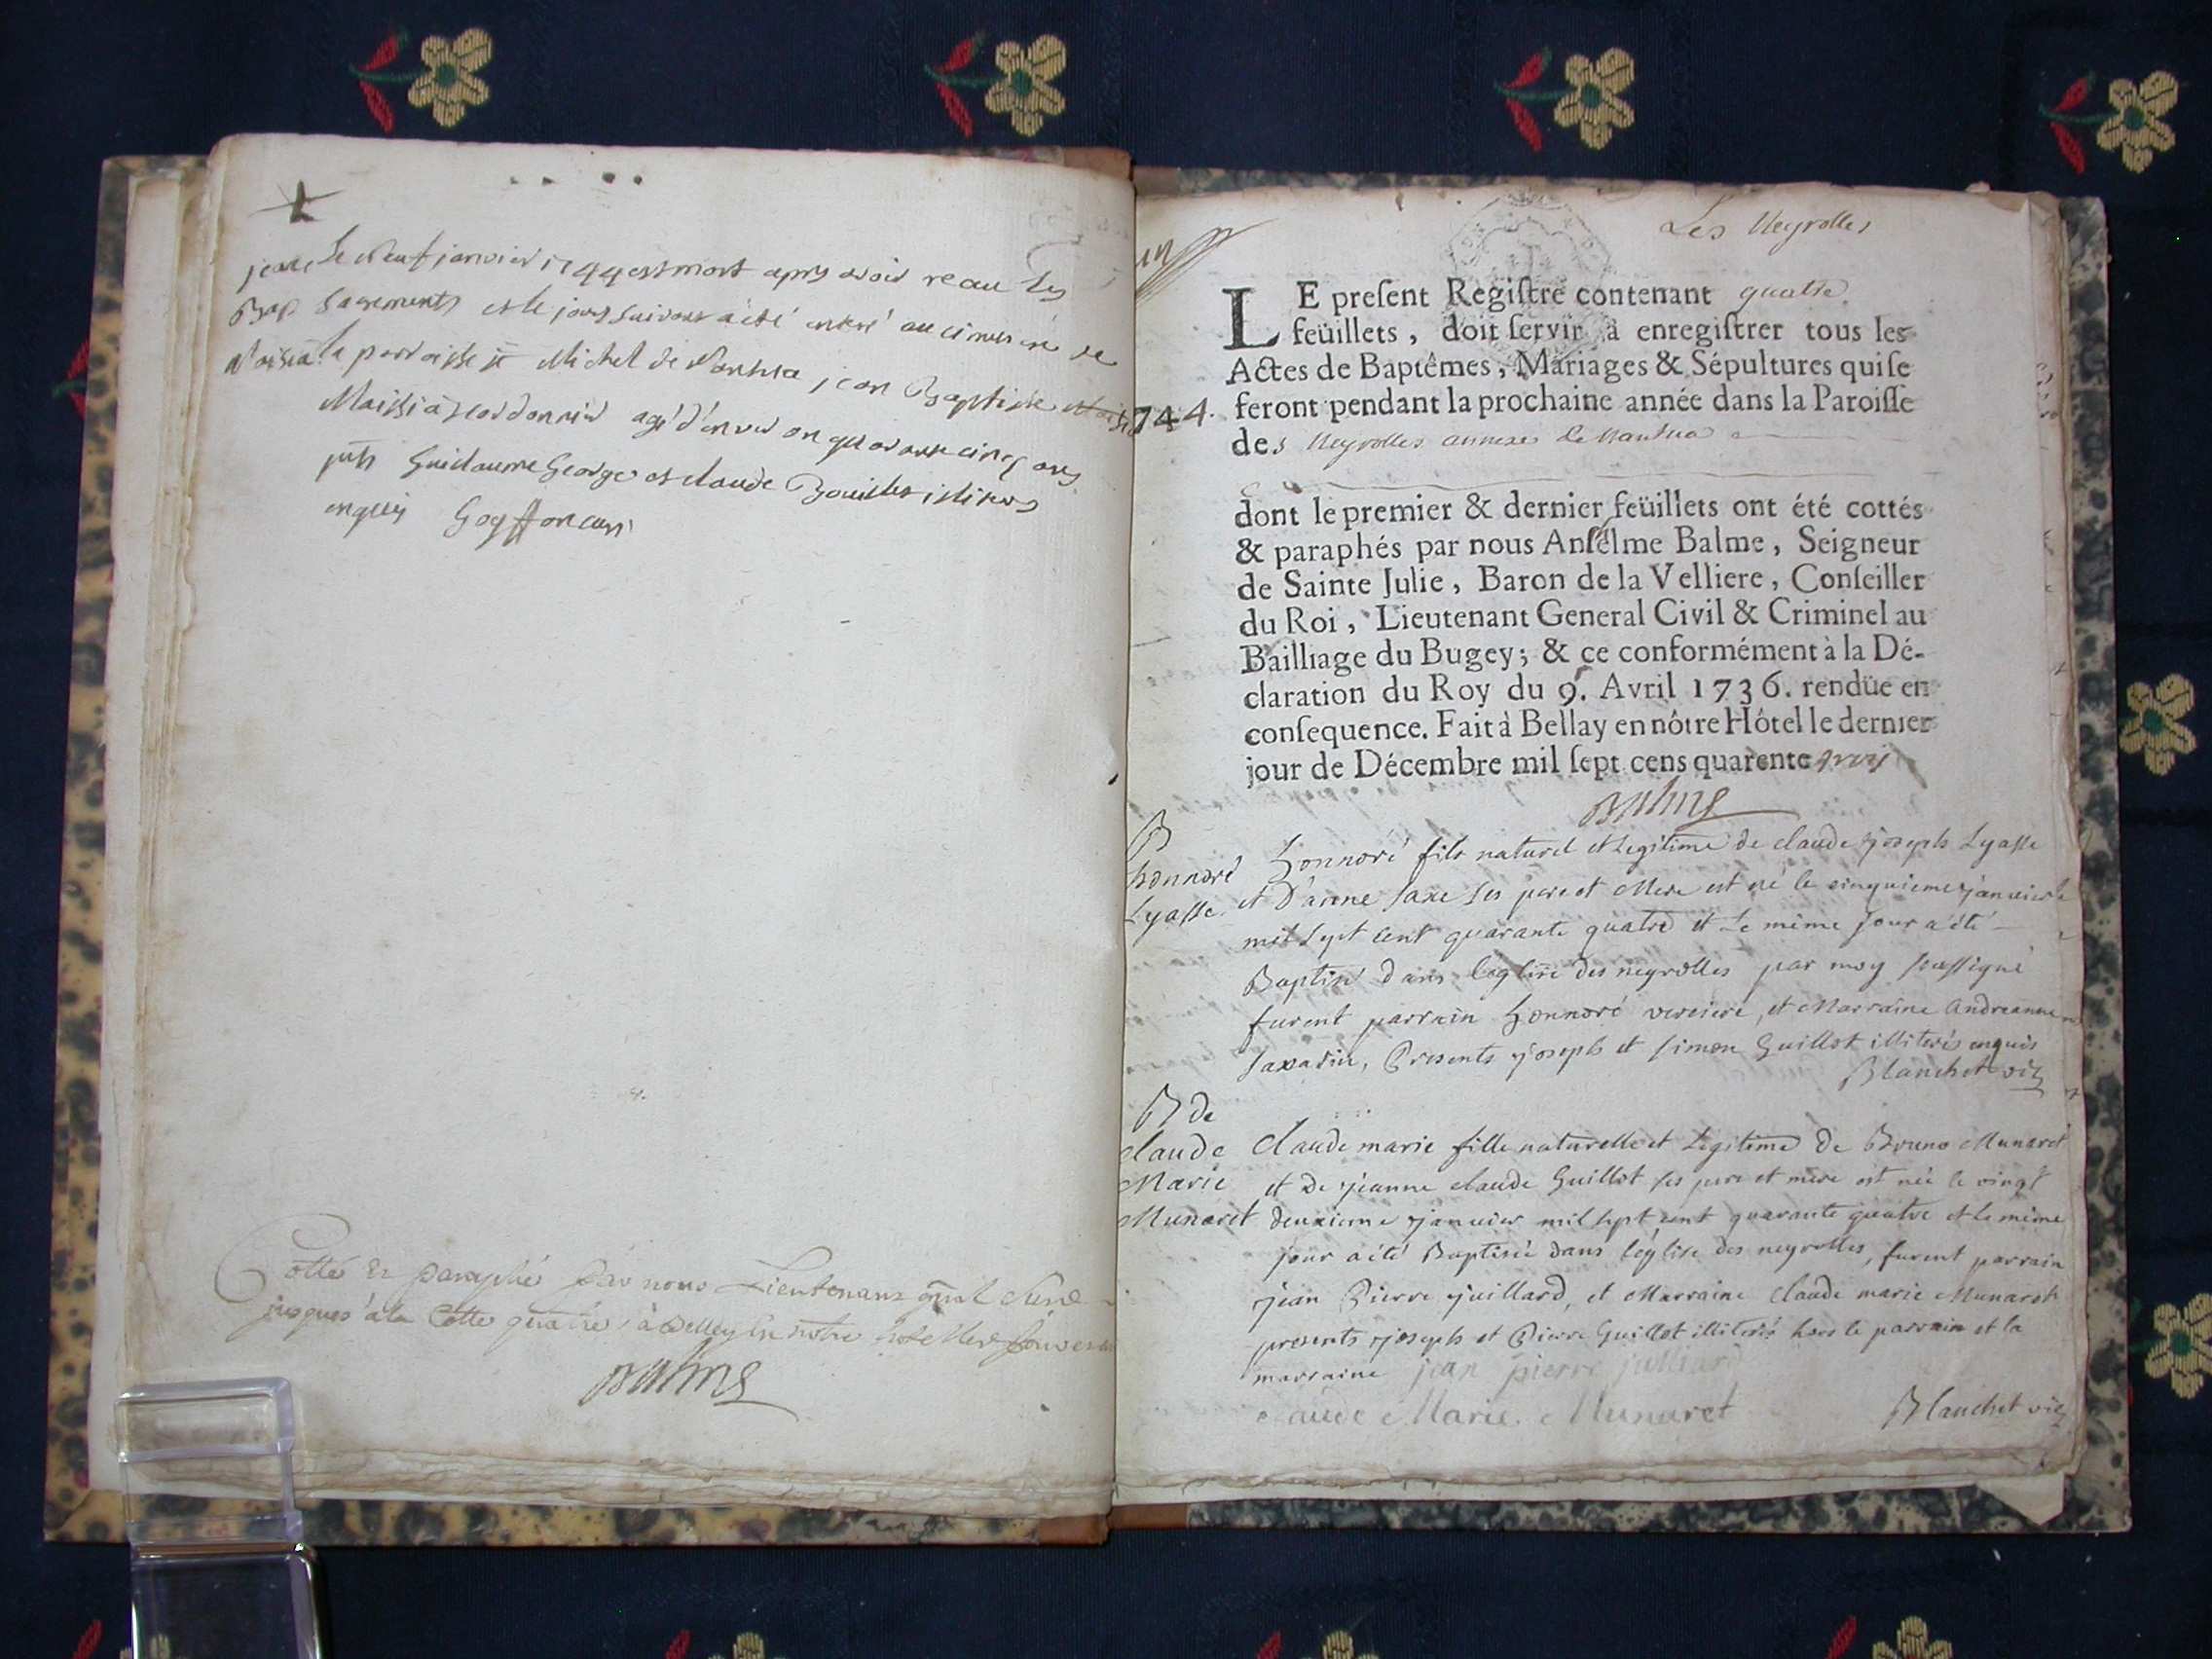 jean Le Neuf janvier 1744 est mort apres avoir receu Les
Bap Sacrements et le jour suivant a été enterré au cimetiere de
la parroisse st Michel de Nantua jean Baptiste
agé d'environ quarante cinq ans
pnts Guillaume George et claude Bouillet illiteres
enquis Goyffon curé
Cotté et paraphé Par nous Lieutenant
jusques à la Cotte quatre, à Belley En notre hotel
Balme
Les Neyrolles
LE preſent Regiſtre contenant quatre
feüillets, doit ſervir à enregiſtrer tous les
Actes de Baptêmes, Mariages & Sépultures qui ſe
1744. feront pendant la prochaine année dans la Paroiſſe
des Neyrolles annexe de Nantua
dont le premier & dernier feüillets ont été cottés
& paraphés par nous Anſelme Balme, Seigneur
de Sainte Julie, Baron de la Velliere, Conſeiller
du Roi, Lieutenant General Civil & Criminel au
Bailliage du Bugey; & ce conformément à la Dé-
claration du Roy du 9. Avril 1736. rendüe en
conſequence. Fait à Bellay en nôtre Hôtel le dernier
jour de Décembre mil ſept cens quarente trois
Balme
B
honnoré
Lyasse
honnoré fils naturel et Legitime de claude joseph Lyasse
et D'anne saxe ses pere et Mere est né le cinquieme janvier
mil sept cent quarante quatre et Le même jour a été
Baptisé dans l'eglise des neyrolles par moy soussigné
furent parrain honnoré , et Marraine Andreanne
savarin, Presents joseph et simon Guillot illiterés enquis
Blanchet vic
B de
claude
Marie
Munaret
Claude marie fille naturelle et Legitime de Bruno Munaret
et de jeanne claude Guillot ses pere et mere est née le vingt
deuxieme janvier mil sept cent quarante quatre et le même
jour a été Baptisée dans l'église des neyrolles, furent parrain
jean Pierre juillard, et Marraine Claude marie Munaret
presents joseph et Pierre Guillot illiterés hors le parrain et la
marraine jean pierre julliard
claude Marie Munaret
Blanchet vic